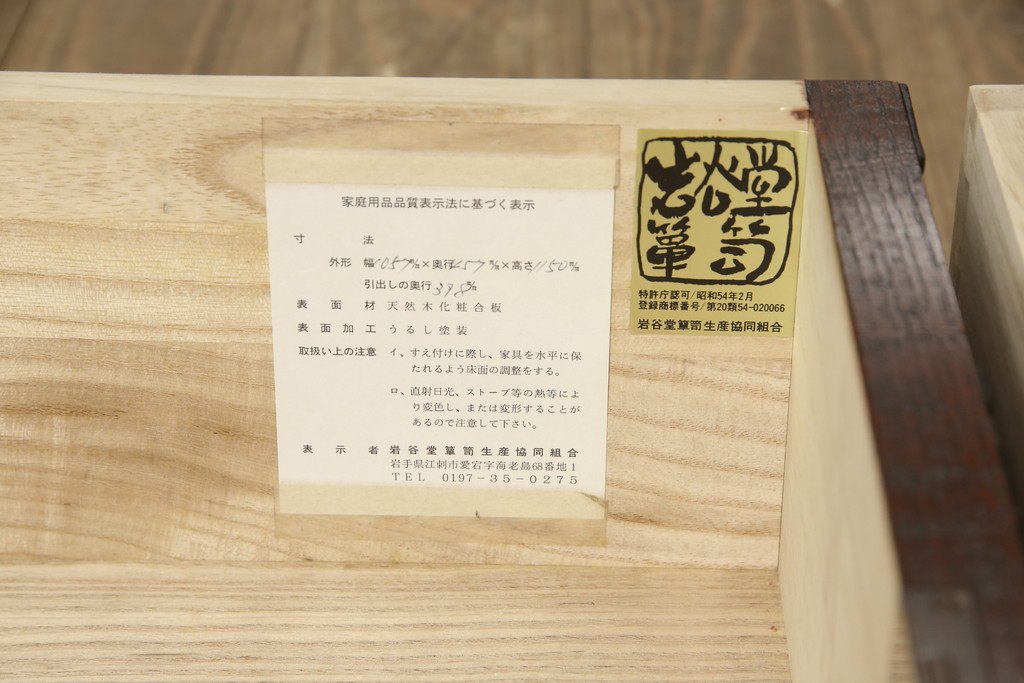 家庭用品品質表示法に基づく表示
寸　　法
外形 幅1057㎜×奥行457㎜×高さ1150㎜
引出しの奥行398㎜
表面材 天然木化粧合板
表面加工 うるし塗装
取扱い上の注意 イ、すえ付けに際し、家具を水平に保
たれるよう床面の調整をする。
ロ、直射日光、ストーブ等の熱等によ
り変色し、または変形することが
あるので注意して下さい。
表示者 岩谷堂簞笥生産協同組合
岩手県江刺市愛宕字海老島68番地1
TEL 0197-35-0275
岩谷堂
簞笥
特許庁認可/昭和54年2月
登録商標番号/第20類54-020066
岩谷堂簞笥生産協同組合